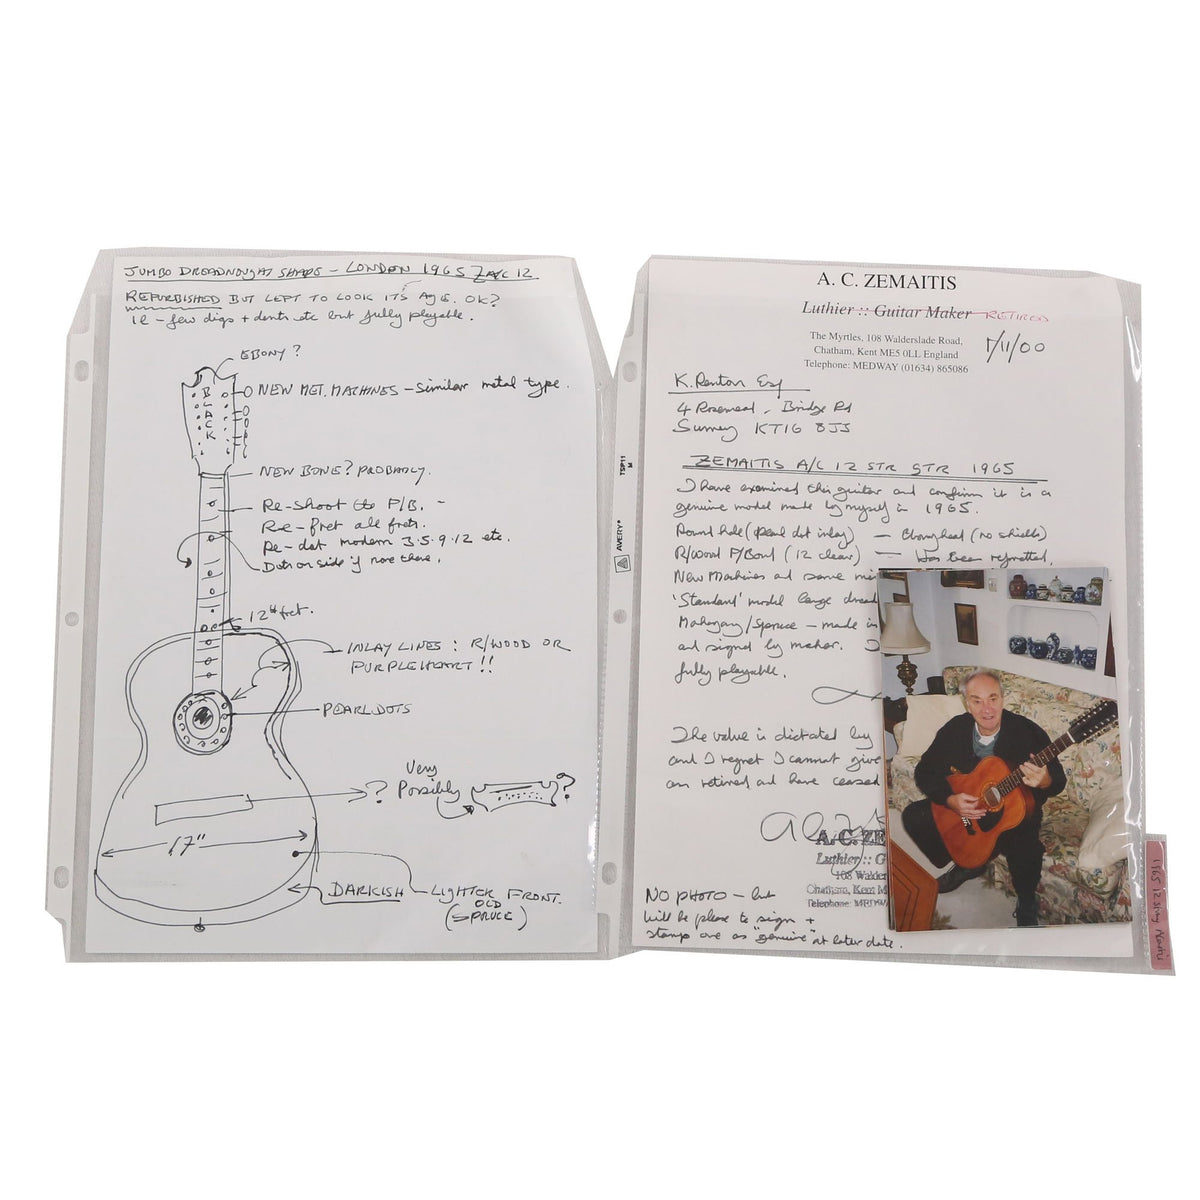 JUMBO DREADNOUGHT SHAPE - LONDON 1965 ZA/C 12
REFURBISHED BUT LEFT TO LOOK IT'S AGE. OK?
IE - few digs + dents etc but fully playable.
EBONY?
BLACK
NEW MET. MACHINES - Similar metal type.
NEW BONE? PROBABLY.
Re-shoot the F/B. -
Re-fret all frets.
Re-dot modern 3.5.9.12 etc.
Dots on side if none there.
12th fret.
INLAY LINES : R/WOOD OR
PURPLEHEART!!
PEARL DOTS
? Very
Possibly ?
17"
DARKISH - LIGHTER FRONT.
OLD
(SPRUCE)
AVERY®
TSP11
M
A. C. ZEMAITIS
Luthier :: Guitar Maker RETIRED
The Myrtles, 108 Walderslade Road,
Chatham, Kent ME5 0LL England
Telephone: MEDWAY (01634) 865086
/11/00
K. Renton Esq
4 Rosemead, Bridge Rd
Surrey KT16 8JJ
ZEMAITIS A/C 12 STR GTR 1965
I have examined this guitar and confirm it is a
genuine model made by myself in 1965.
Round hole (pearl dot inlay) - Ebony head (no shields)
R/wood F/Board (12 clear) - Has been refretted,
New Machines and some
'Standard' model large
Mahogany/Spruce - made in
and signed by maker. I
fully playable.
The value is dictated by
and I regret I cannot give
am retired and have ceased
A. C. ZE
Luthier :: G
108 Walder
Chatham, Kent M
Telephone: MEDW
NO PHOTO - but
will be please to sign +
stamp one as "genuine" at later date.
1965 12 string